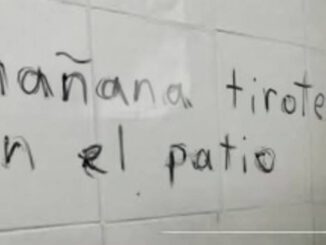 mañana tirote
n el patio